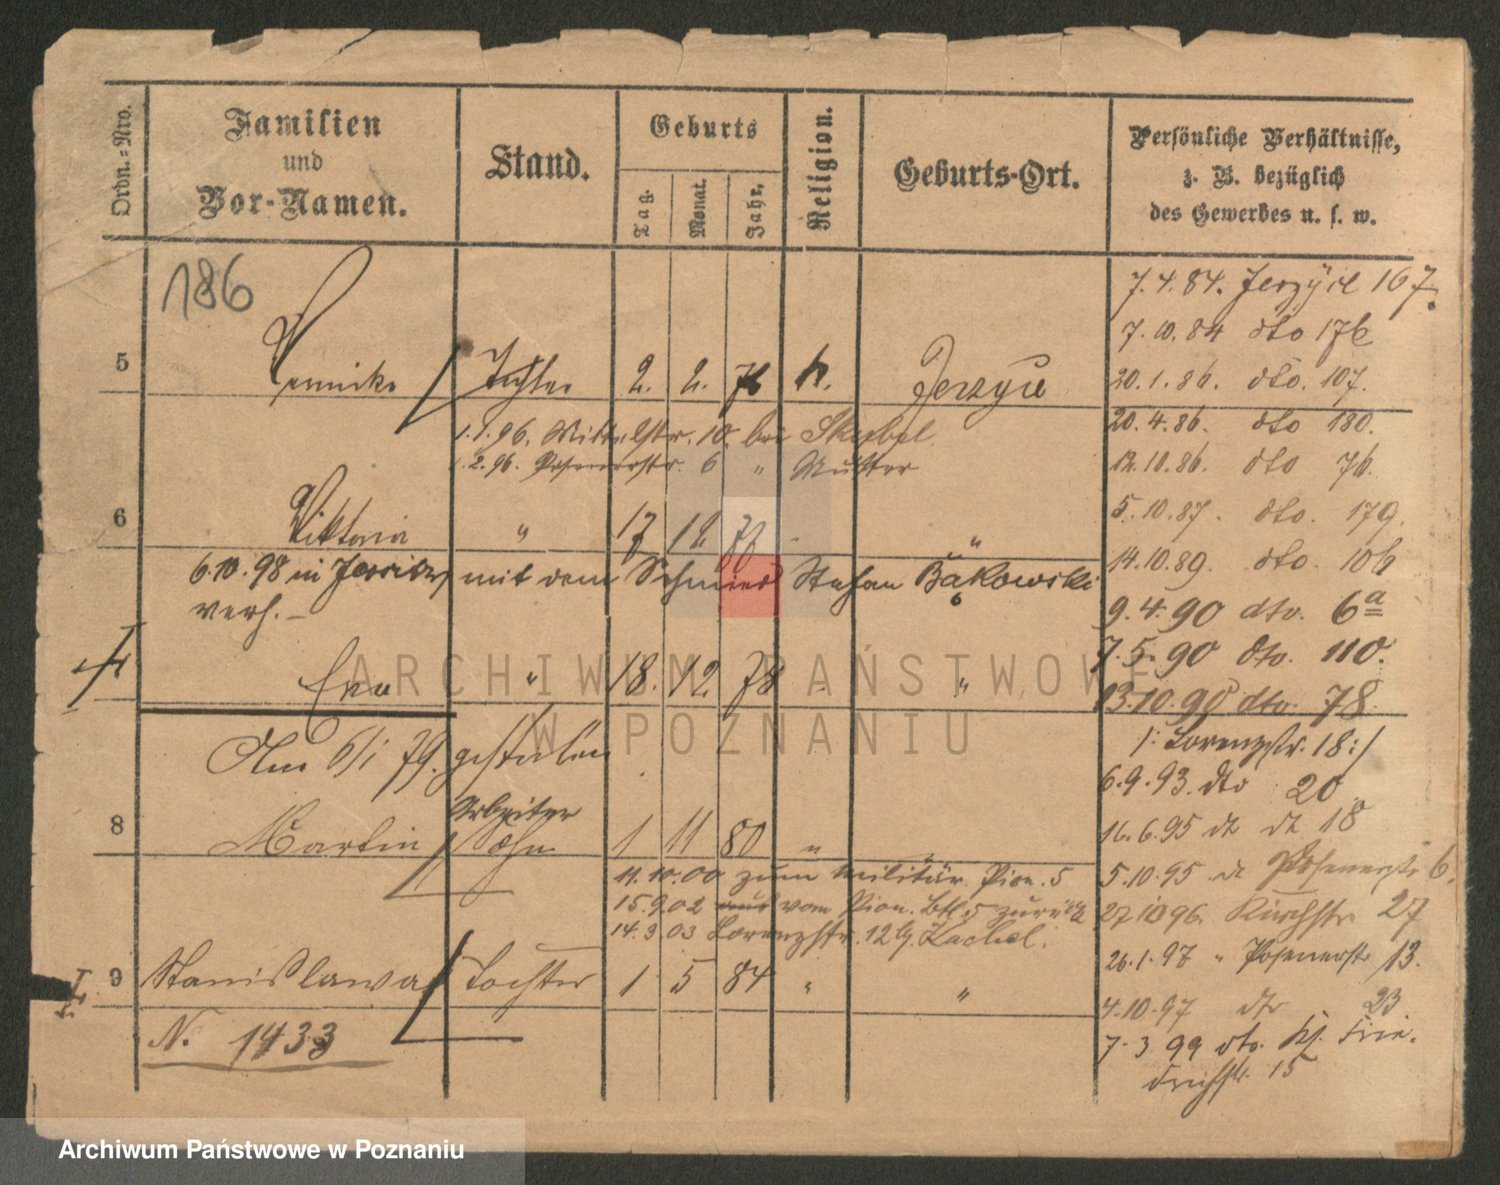 Ordn.-Nro.
Familien
und
Vor-Namen.
Stand.
Geburts
Tag.
Monat.
Jahr.
Religion.
Geburts-Ort.
Persönliche Verhältnisse,
z. B. bezüglich
des Gewerbes u. s. w.
186
5 Tochter 2. 2. 76 k. Jerzyce
1.1.96. Mittelstr. 10. bei
1.2.96. Posenerstr. 6 " Mutter
6 Viktoria " 17 12 "
6.10.98 in mit dem Schmied Stefan Bąkowski
verh. –
Eva " 18. 12. 78 "
Am 6/1 79. gestorben
Arbeiter
8 Martin Sohn 1 11 80 "
11.10.00 zum Militär Pion. 5
15.9.02 vom Pion. Btl. 5 zurück
14.3.03 Lorenzstr. 12
9 Stanislawa Tochter 1 5 84 " "
N. 1433
7.4.84. 167.
7.10.84 dto 176
20.1.86. dto. 107.
20.4.86. dto 180.
12.10.86. dto 76.
5.10.87. dto. 179.
14.10.89. dto. 106
9.4.90 dto. 6a
7.5.90 dto. 110.
13.10.90 dto. 78.
/: Lorenzstr. 18 :/
6.9.93. dto 20
16.6.95 dt dt 18
5.10.95 Posenerstr 6.
96. Kirchstr 27
26.1.97 " Posenerstr 13.
4.10.97 dto 23
7.3.99 dto. Kl. Frie-
drichstr. 15
ARCHIWUM PAŃSTWOWE
W POZNANIU
Archiwum Państwowe w Poznaniu